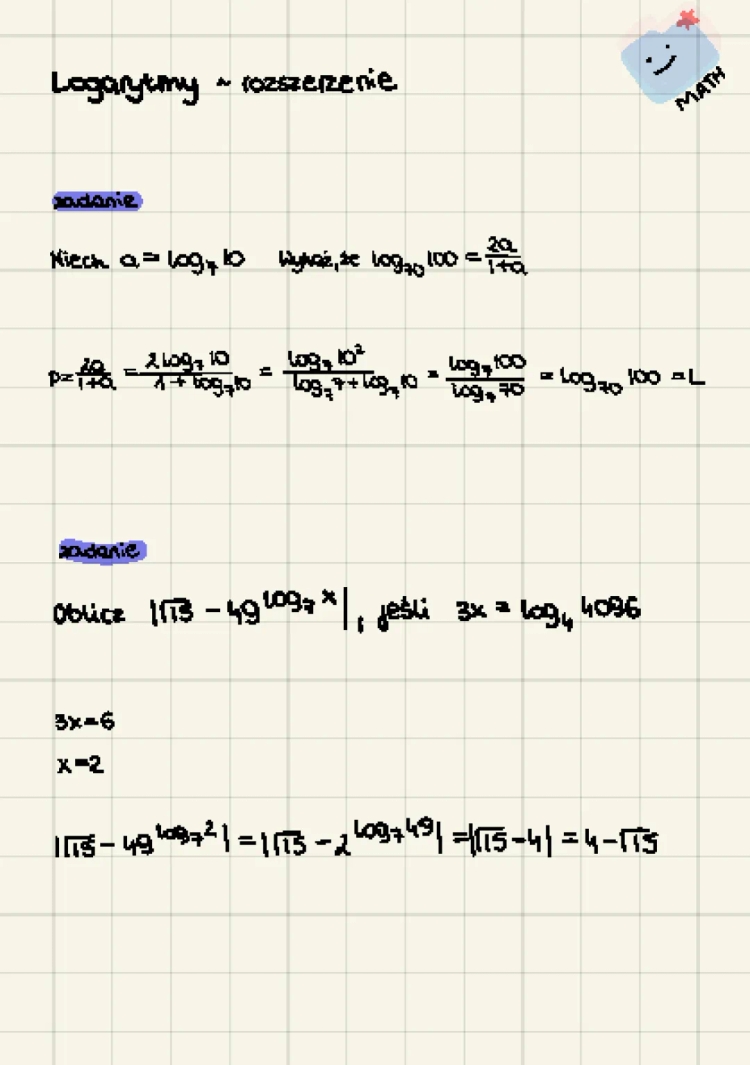 MATH
Logarytmy ~ rozszerzenie
zadanie
Niech a = log₇ 10 Wykaż, że log₇₀ 100 = 2a/1+a
P = 2a/1+a = 2log₇ 10/1 + log₇ 10 = log₇ 10²/log₇ 7 + log₇ 10 = log₇ 100/log₇ 70 = log₇₀ 100 = L
zadanie
Oblicz |√15 − 49^log₇ x|, jeśli 3x = log₄ 4096
3x = 6
x = 2
|√15 − 49^log₇ 2| = |√15 − 2^log₇ 49| = |√15 − 4| = 4 − √15